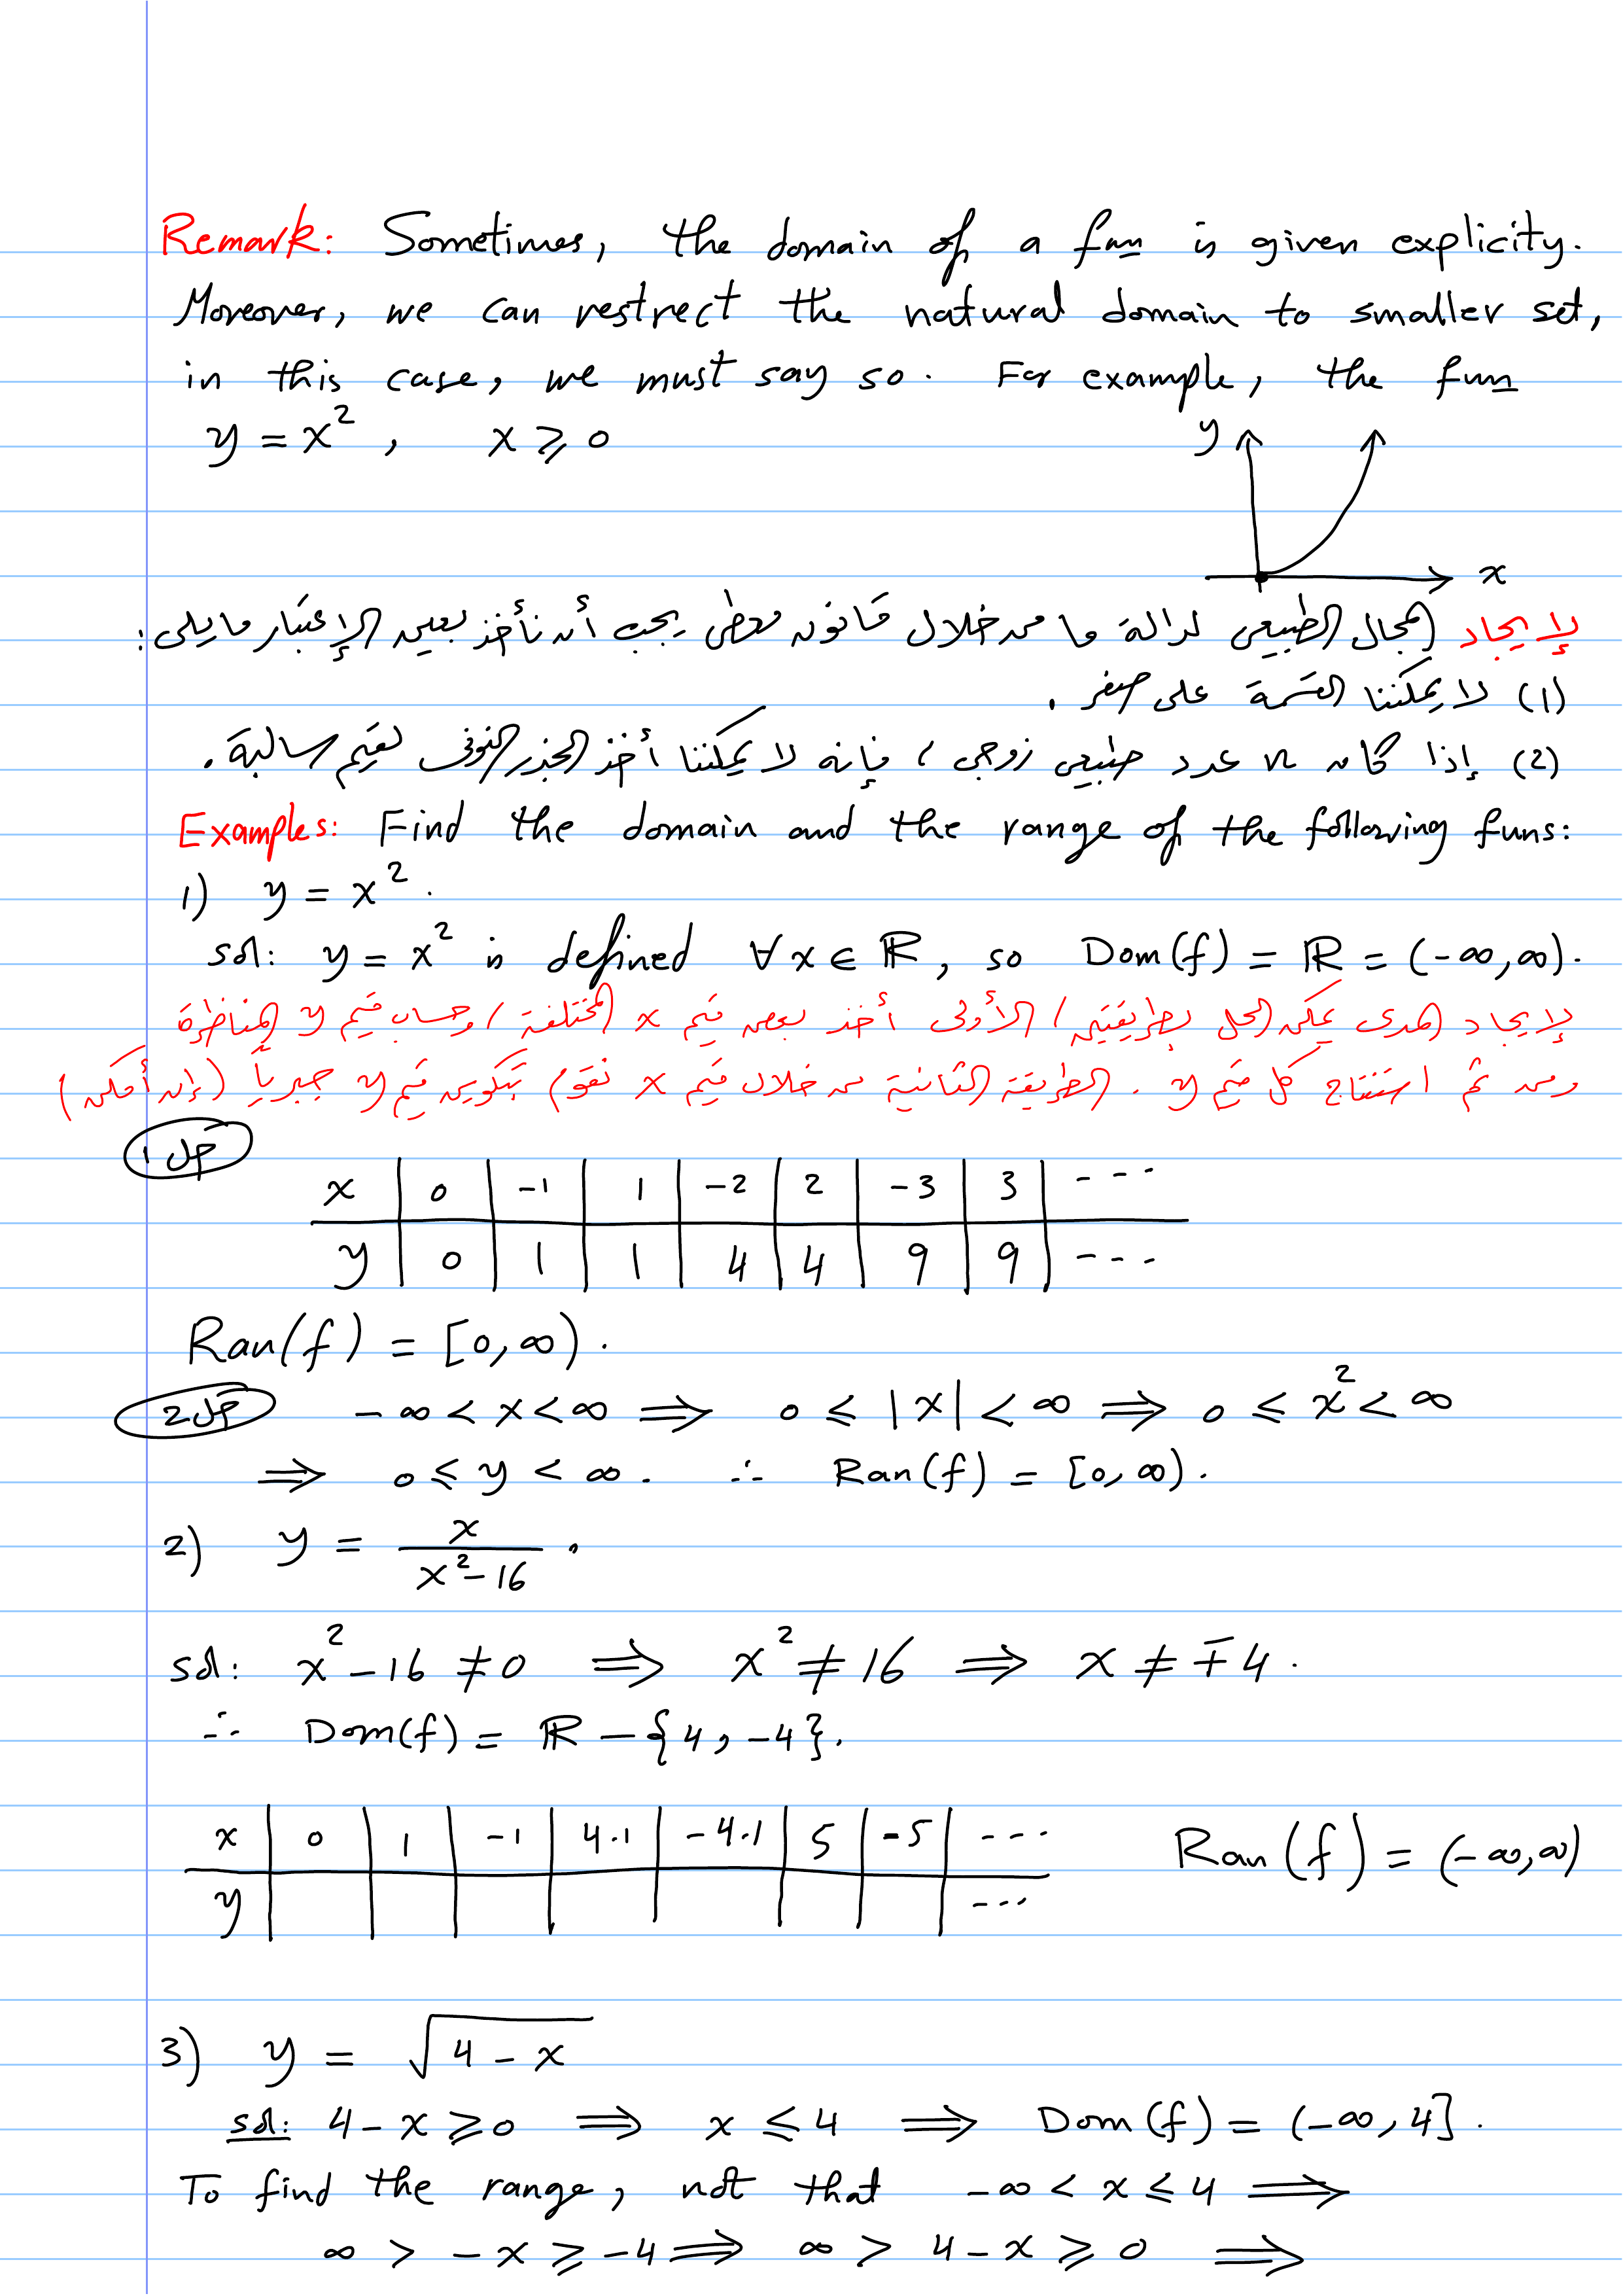 Remark: Sometimes, the domain of a fun is given explicity.
Moreover, we can restrect the natural domain to smaller set,
in this case, we must say so. For example, the fun
y = x², x ⩾ 0
y
x
لإيجاد المجال الطبيعي لدالة ما من خلال قانون معطى يجب أن نأخذ بعين الإعتبار ما يلي:
(1) لا يمكننا القسمة على صفر.
(2) إذا كان n عدد طبيعي زوجي، فإنه لا يمكننا أخذ الجذر النوني لقيم سالبة.
Examples: Find the domain and the range of the following funs:
1) y = x².
sol: y = x² is defined ∀ x ∈ ℝ, so Dom(f) = ℝ = (-∞,∞).
لإيجاد المدى يمكن الحل بطريقتين، الأولى أخذ بعض قيم x المختلفة، وحساب قيم y المناظرة
ومن ثم استنتاج كل قيم y. الطريقة الثانية من خلال قيم x نقوم بتكوين قيم y جبرياً (إن أمكن)
حل 1
x | 0 | -1 | 1 | -2 | 2 | -3 | 3 | ---
y | 0 | 1 | 1 | 4 | 4 | 9 | 9 | ---
Ran(f) = [0,∞).
حل 2 -∞ < x < ∞ ⟹ 0 ⩽ |x| < ∞ ⟹ 0 ⩽ x² < ∞
⟹ 0 ⩽ y < ∞. ∴ Ran(f) = [0,∞).
2) y = x/(x²-16).
sol: x²-16 ≠ 0 ⟹ x² ≠ 16 ⟹ x ≠ ∓4.
∴ Dom(f) = ℝ - {4, -4}.
x | 0 | 1 | -1 | 4.1 | -4.1 | 5 | -5 | ---
y | | | | | | | | ---
Ran(f) = (-∞,∞)
3) y = √(4-x)
sol: 4-x ⩾ 0 ⟹ x ⩽ 4 ⟹ Dom(f) = (-∞, 4].
To find the range, not that -∞ < x ⩽ 4 ⟹
∞ > -x ⩾ -4 ⟹ ∞ > 4-x ⩾ 0 ⟹